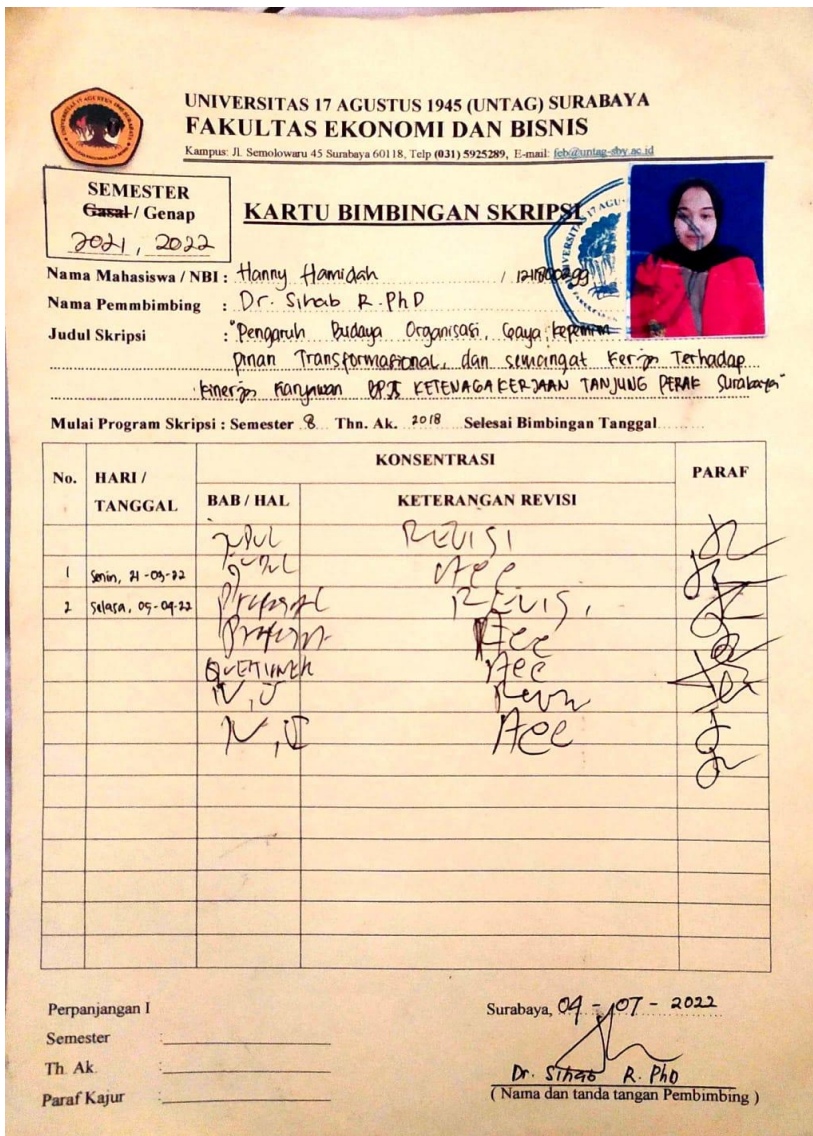 UNIVERSITAS 17 AGUSTUS 1945 (UNTAG) SURABAYA
FAKULTAS EKONOMI DAN BISNIS
Kampus: Jl. Semolowaru 45 Surabaya 60118, Telp (031) 5925289, E-mail: feb@untag-sby.ac.id
SEMESTER
Gasal / Genap
2021, 2022
KARTU BIMBINGAN SKRIPSI
Nama Mahasiswa / NBI : Hanny Hamidah /
Nama Pemmbimbing : Dr. Sihab R. PhD
Judul Skripsi : "Pengaruh Budaya Organisasi, Gaya kepemim
pinan Transformasional, dan semangat Kerja Terhadap
Kinerja Karyawan BPJS KETENAGAKERJAAN TANJUNG PERAK Surabaya"
Mulai Program Skripsi : Semester 8 Thn. Ak. 2018 Selesai Bimbingan Tanggal
No. HARI / TANGGAL KONSENTRASI PARAF
BAB / HAL KETERANGAN REVISI
Judul REVISI
1 Senin, 21-03-22 Judul Acc
2 Selasa, 05-04-22 Proposal REVISI
Proposal Acc
Acc
IV, V Revisi
IV, V Acc
Perpanjangan I
Semester :
Th. Ak. :
Paraf Kajur :
Surabaya, 04 - 07 - 2022
Dr. Sihab R. PhD
( Nama dan tanda tangan Pembimbing )